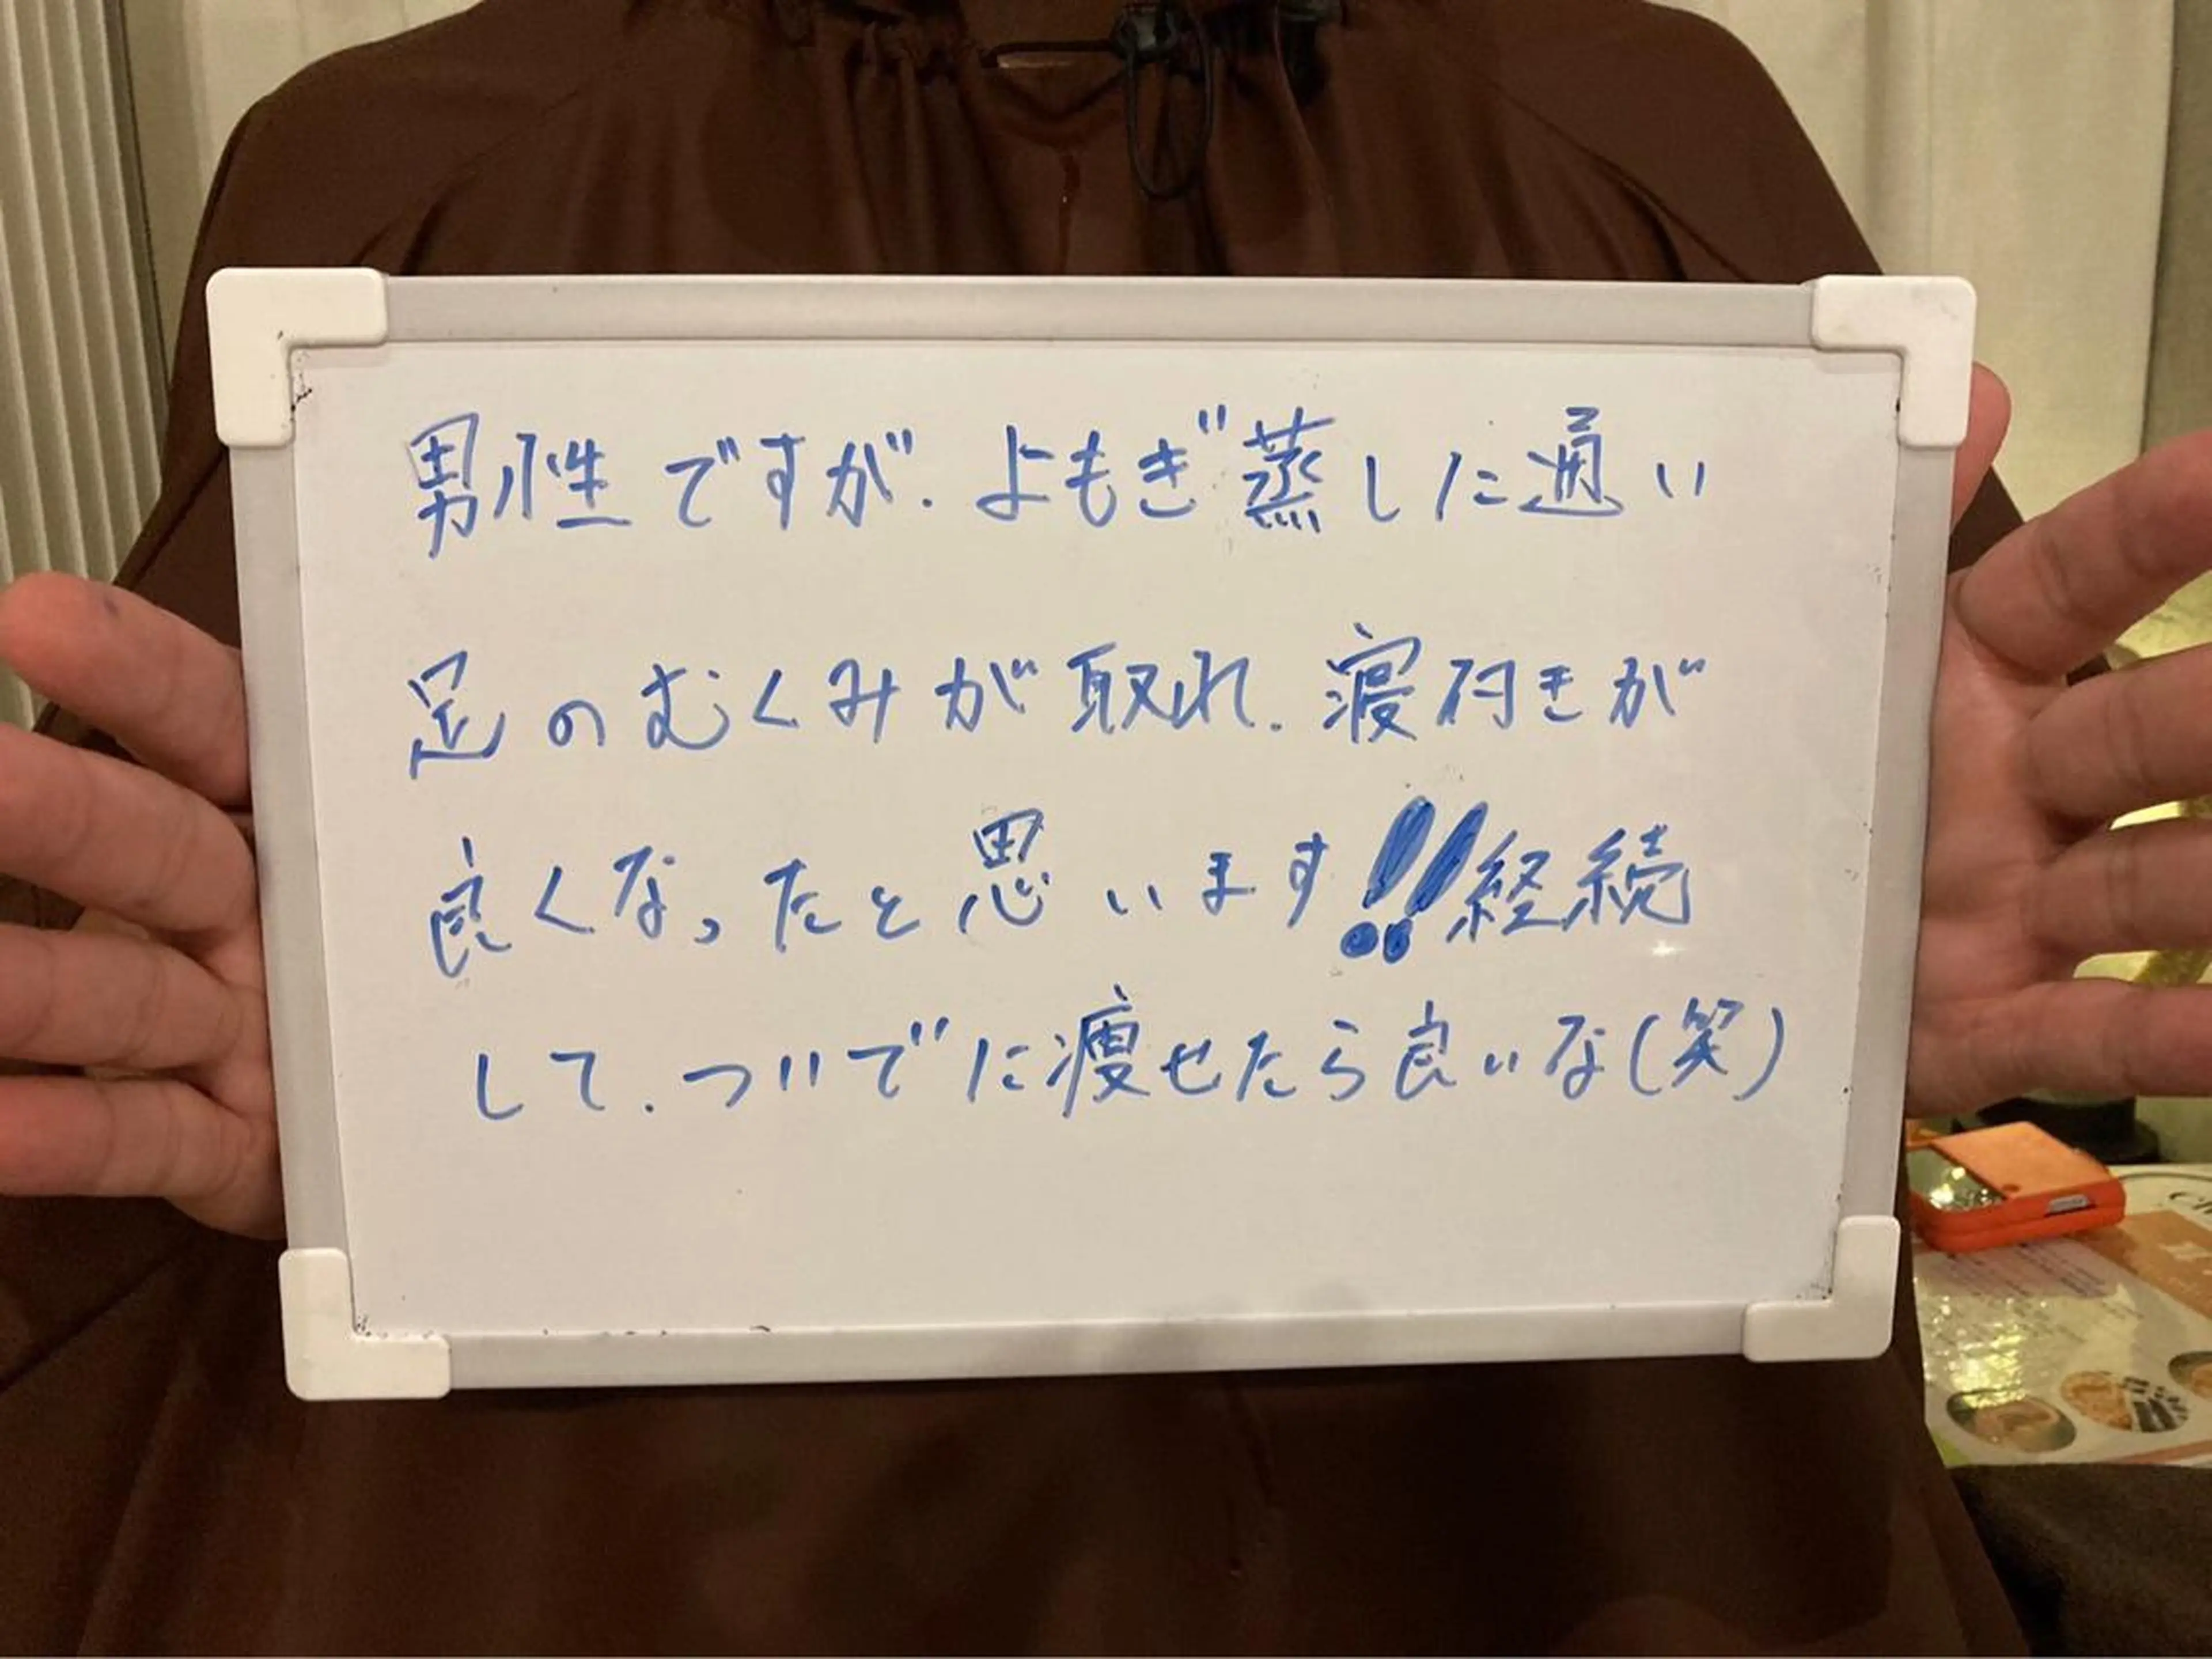 男性ですが、よもぎ蒸しに通い
足のむくみが取れ、寝付きが
良くなったと思います!!経続
して、ついでに痩せたら良いな(笑)